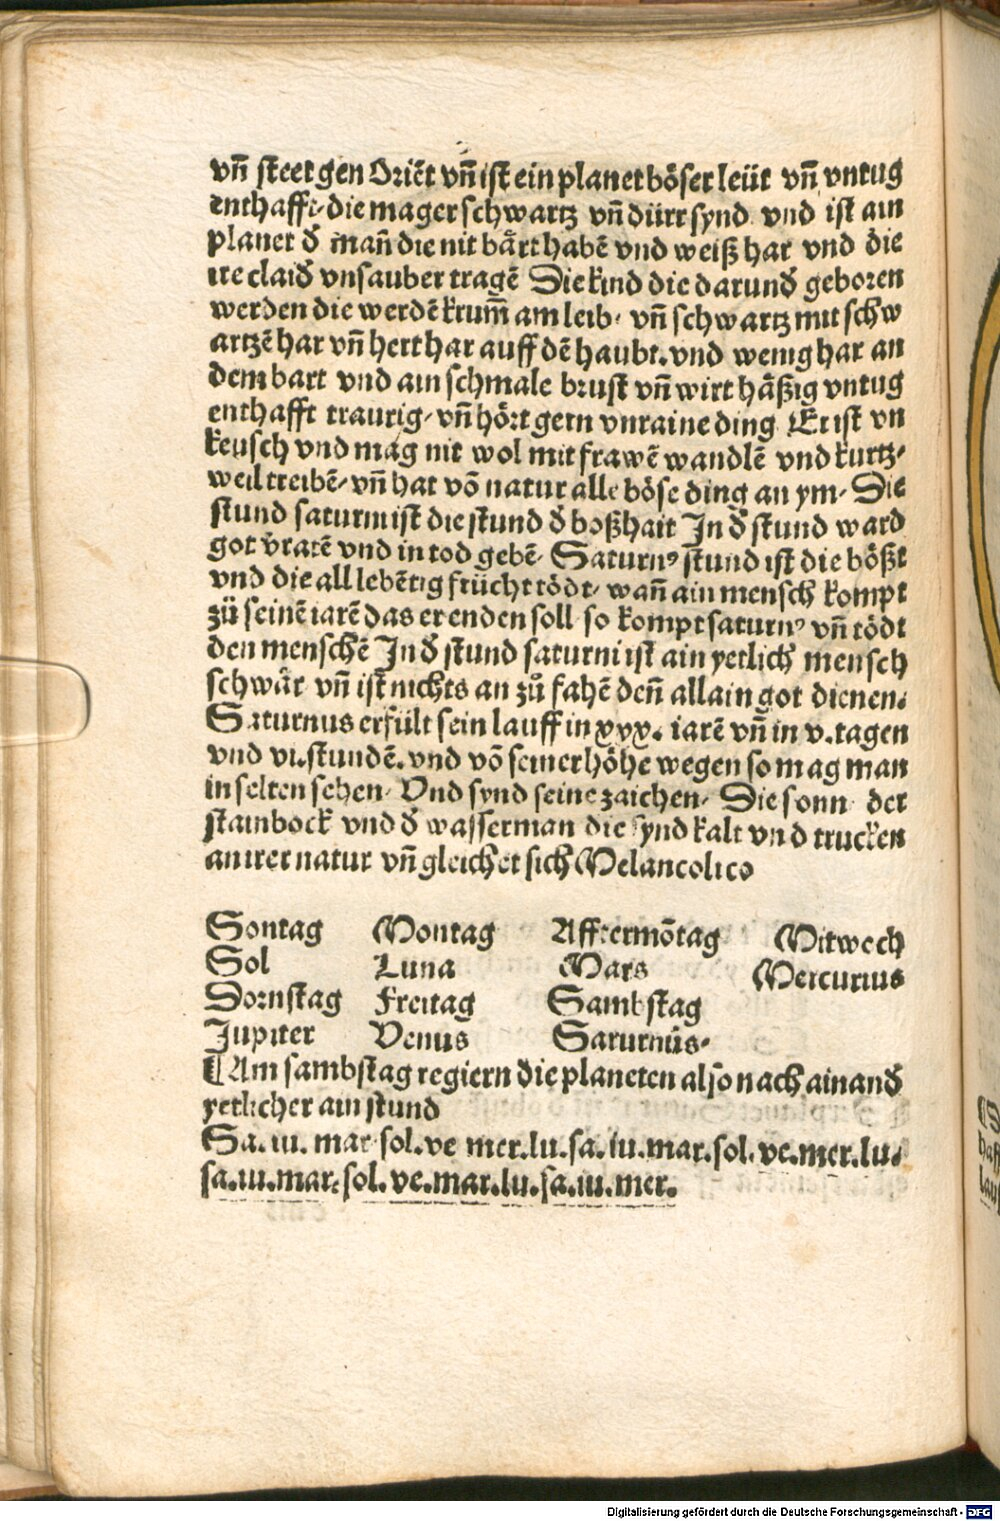 vn̄ steet gen Oriēt vn̄ ist ein planet böser leüt vn̄ vntug
enthafft, die mager schwartz vn̄ dürr synd. vnd ist ain
planet d̕ man̄ die nit bärt habē vnd weiß har vnd die
ire claid̕ vnsauber tragē Die kind die darund̕ geboren
werden die werdē krum̄ am leib, vn̄ schwartz mit schw
artzē har vn̄ hert har auff dē haubt. vnd wenig har an
dem bart vnd ain schmale brust vn̄ wirt häßig vntug
enthafft traurig, vn̄ hört gern vnraine ding Er ist vn
keusch vnd mag nit wol mit frawē wandlē vnd kurtz,
weil treibē, vn̄ hat vō natur alle böse ding an ym, Die
stund saturni ist die stund d̕ boßhait In d̕ stund ward
got v̕ratē vnd in tod gebē, Saturnꝰ stund ist die bößt
vnd die all lebētig frücht tödt, wan̄ ain mensch kompt
zů seinē iarē das er enden soll, so kompt saturnꝰ vn̄ tödt
den menschē In d̕ stund saturni ist ain yetlich mensch
schwär vn̄ ist nichts an zů fahē den̄ allain got dienen.
Saturnus erfült sein lauff in xxx. iarē vn̄ in v. tagen
vnd vi. stundē. vnd vō seiner höhe wegen so mag man
in selten sehen, Vnd synd seine zaichen, Die sonn der
stainbock vnd d̕ wasserman die synd kalt vnd trucken
an irer natur vn̄ gleichet sich Melancolico
Sontag Montag Afftermōtag Mitwech
Sol Luna Mars Mercurius
Dornstag Freitag Sambstag
Jupiter Venus Saturnus.
¶ Am sambstag regiern die planeten also nach ainand̕
yetlicher ain stund
Sa. iu. mar sol. ve mer. lu. sa. iu. mar. sol. ve. mer. lu.
sa. iu. mar. sol. ve. mar. lu. sa. iu. mer.
Digitalisierung gefördert durch die Deutsche Forschungsgemeinschaft - DFG